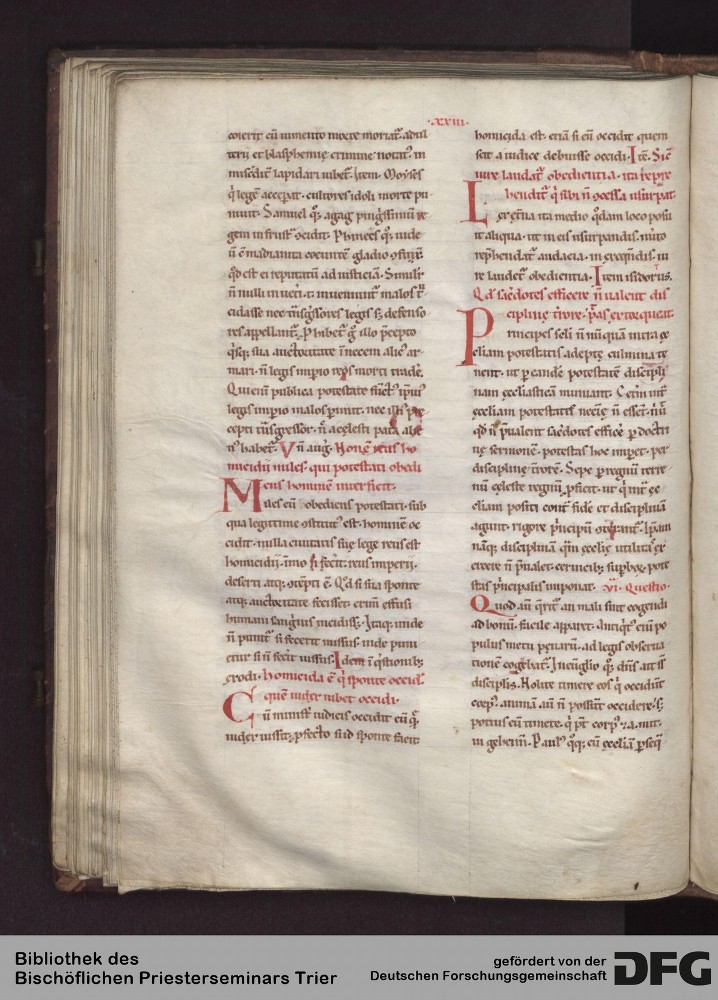 ·xxiii·
coierit cū iumento morte moriat᷑. adul
terii et blasphemię crimine notat᷒. in
lapidari iubet᷑. Item. Moyses
q̇ legē acceperat. cultores idoli morte pu
niuit. Samuel q;. agag pinguissimū re
gem in frusta ꝯcidit. Phinees q;. iude
ū ē madianita coeuntē gladio
qd̄ est ei reputatū ad iusticiā. Similit᷑
n̄ nulli inueniunt᷑ malos
cidasse nec legis s; defenso
res appellant᷑. Phibet᷑ g̊ illo p̄cepto
q̇sq; sua auctoritate in necem alic᷒ ar
mari. n̄ legis impio reos morti tradē.
Qui enī publica potestate functus
legis impio malos pimit. nec illi᷒ pre
cepti trāsgressor. n̄ a cęlesti patria alie
n᷒ habet᷑. V n̄ aug᷒. Non ē reus ho
micidii miles. qui potestati obedi
ens hominē interficit.
Miles cū obediens potestati. sub
qua legitime ꝯstitut᷒ est. hominē oc
cidit. nulla ciuitatis suę lege reus est
homicidii. īmo si n̄ fecit. reus imperii
deserti atq; ꝯtēpti ē. Qd̄ si sua sponte
atq; auctoritate fecisset. crimē effusi
humani sanguis incidiss;. Itaq; unde
n̄ punit᷑ si fecerit iniussus. inde puni
etur si n̄ fecit iussus. Idem ī q̄stionib;
exodi. homicida ē q̇ sponte occid᷑
quē iudex iubet occidi.
Cū minist᷑ iudicis occidit eū q̄
iudex iussit. pfecto si id sponte facit
homicida est. etiā si eū occidit quem
scit a iudice debuisse occidi. Itē. Sic
iure laudat᷑ obedientia. ita repre
hendit᷑ q̇ sibi n̄ ꝯcessa usurpat.
Lex ęt̄na ita medio q̇dam loco posu
it aliqua. ut in eis usurpandis. mito
rep̄hendat᷑ audacia. in exeqn̄dis. iu
re laudet᷑ obedientia. Item isidorus.
Qd̄ sacerdotes efficere n̄ ualent dis
ciplinę t̄rore. p̄tas extorqueat.
Principes sęli n̄ nūquā intra ec
cliam potestatis adeptę culmina te
nent. ut p eandē potestatē discipli
nam ęccliasticā muniant. Cet̄m int᷑
ęccliam potestatis necię n̄ essent. nisi
qd̄ n̄ p̄ualent sacerdotes efficē p doctri
nę sermonē. potestas hoc impet. per
disciplinę t̄rorē. Sepe p regnū terre
num cęleste regnū pficit. ut q̇ int᷑ ęc
cliam positi cont᷑ fidē et disciplinā
agunt. rigore p̄ncipū ꝯterant᷑. Ipsam
nāq; disciplinam quā ęcclię utilitas ex
ercere n̄ p̄ualet. ceruicib; supboꝝ pote
stas p̄ncipalis imponat. vi. Questio.
Quod aū q̄rit᷑ an mali sint cogendi
ad bonū. facile apparet. Antiqt᷒ enī po
pulus metu pęnarū. ad legis obserua
tionē cogebat᷑. In euglio q;. dn̄s ait suis
disciplis. Nolite timere eos q̇ occidūt
corp᷒. animā aū n̄ possūt occidere. s;
potius eum timete. q̇ pt corp᷒ ⁊ a. mit.
in gehennā. Paul᷒ q;. cū ęccliā pseq̄
Bibliothek des
Bischöflichen Priesterseminars Trier
gefördert von der
Deutschen Forschungsgemeinschaft
DFG